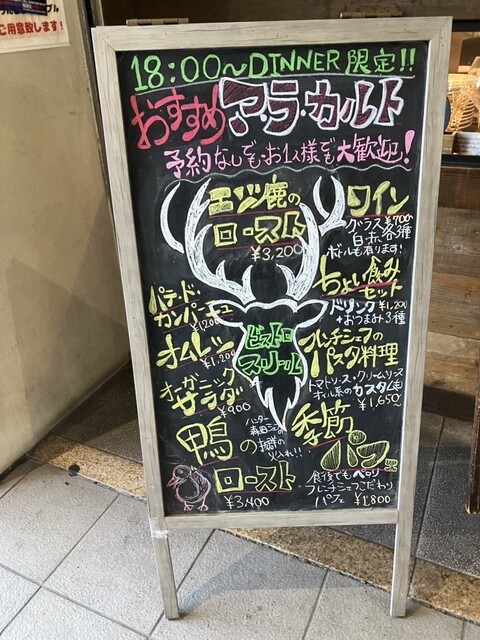 ご用意致します!
18:00~DINNER限定!!
おすすめ ア・ラ・カルト
予約なしでも・お1人様でも大歓迎!
エゾ鹿の
ロースト
¥3,200
ワイン
グラス ¥700
白・赤 各3種
ボトルも有ります!
ちょい飲み
セット
ドリンク ¥1,200
+おつまみ3種
パテ・ド・
カンパーニュ
¥1,200
オムレツ
¥1,200
オーガニック
サラダ
¥900
ビストロ
スリール
フレンチシェフの
パスタ料理
トマトソース・クリームソース
オイル系のカスタムも
¥1,650~
鴨の
ロースト
¥3,400
ハンター
抜群の
季節
パフェ
食後でもペロリ
フレンチシェフこだわり
パフェ ¥1,800